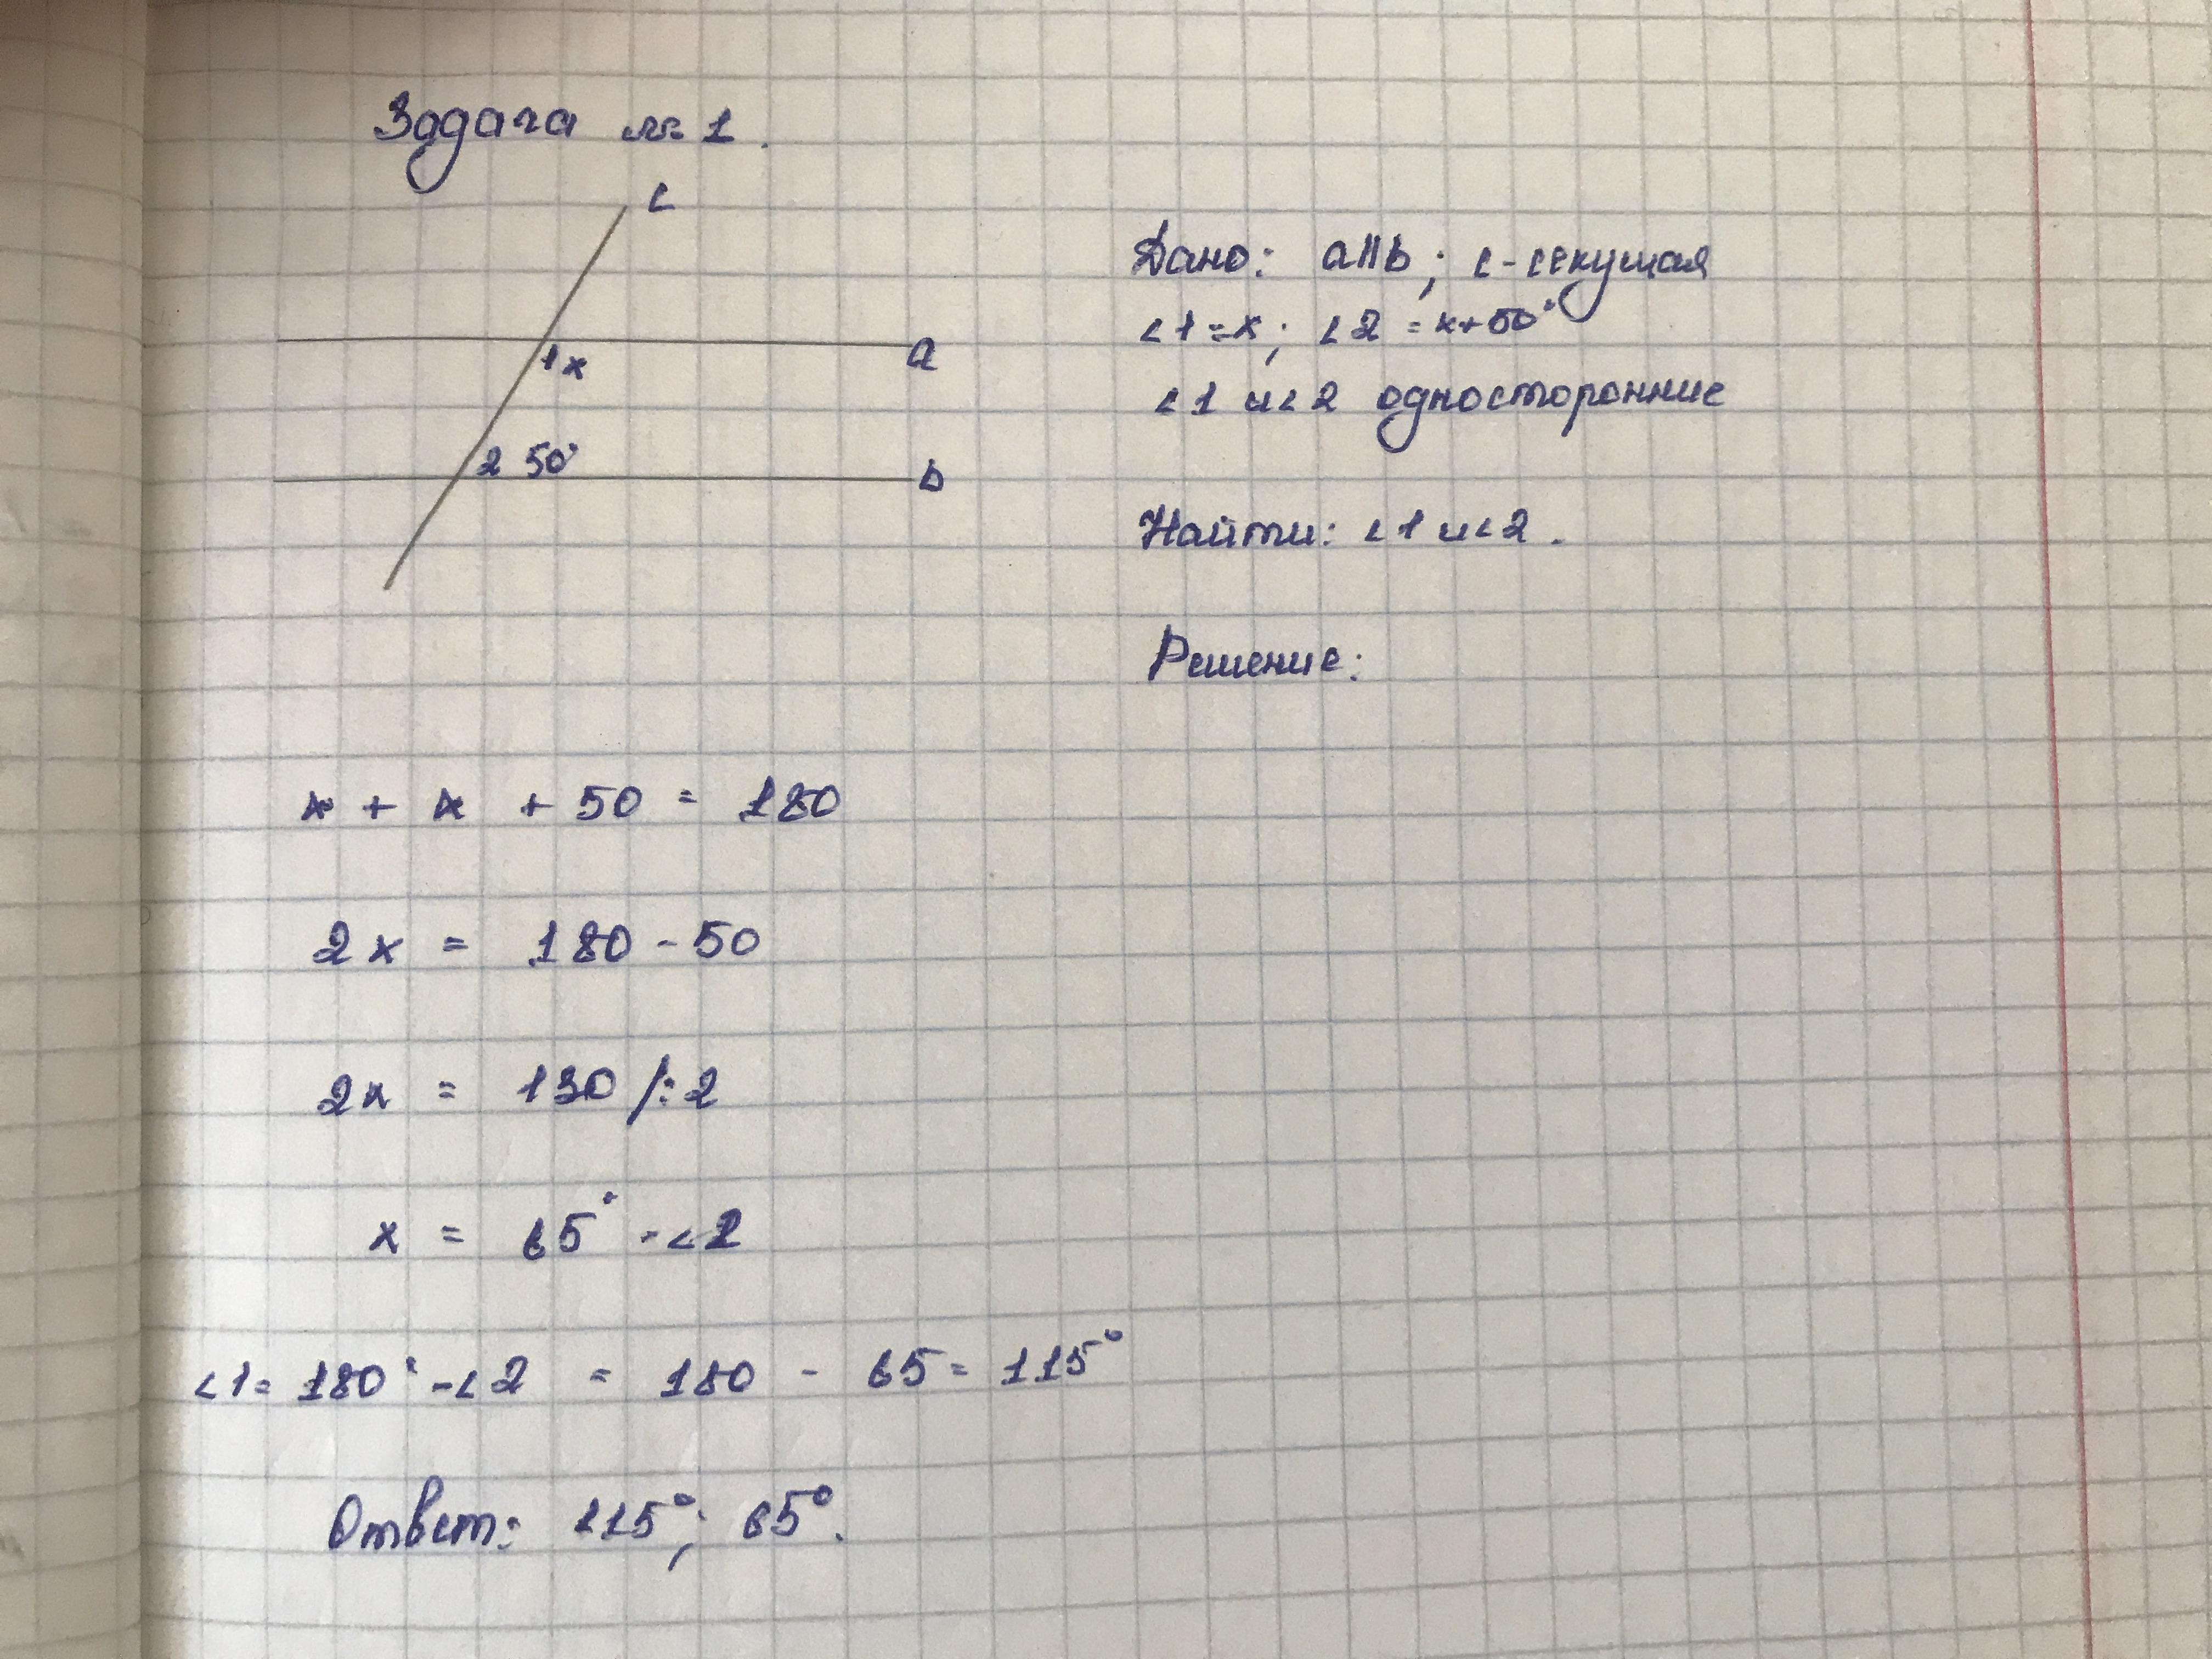 Задача № 1.
c
1 x
a
2 50°
b
Дано: a||b; c-секущая
∠1=x; ∠2=x+50°
∠1 и ∠2 односторонние
Найти: ∠1 и ∠2.
Решение:
x + x + 50 = 180
2x = 180 - 50
2x = 130 /:2
x = 65° - ∠2
∠1= 180° - ∠2 = 180 - 65 = 115°
Ответ: 115°; 65°.